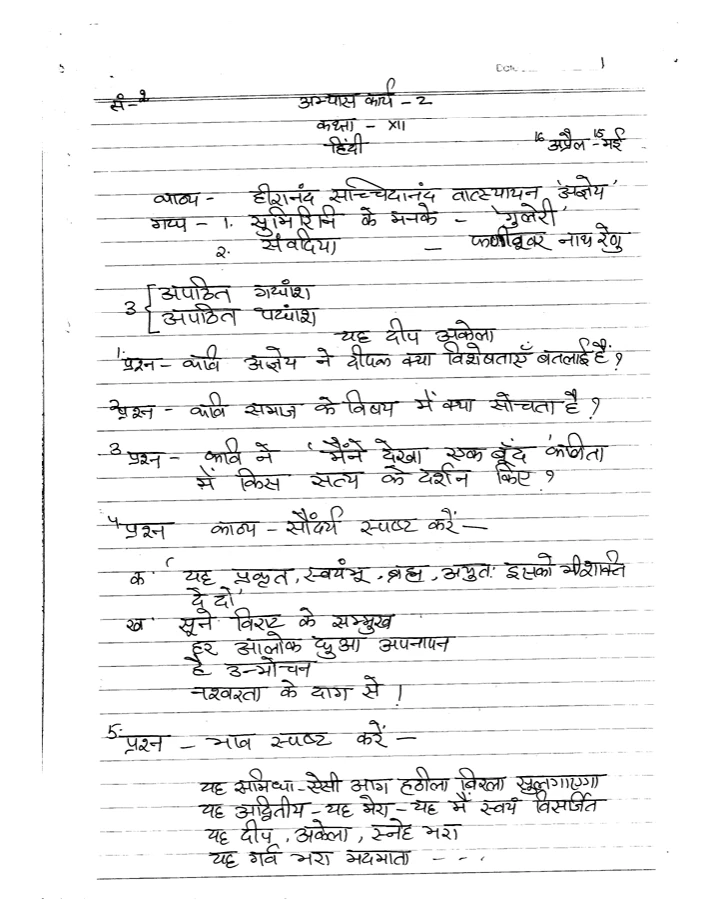 Date 1
सं-2 अभ्यास कार्य - 2
कक्षा - XII
हिंदी 16 अप्रैल - 15 मई
काव्य - हीरानंद सच्चिदानंद वात्स्यायन 'अज्ञेय'
गद्य - 1. सुमिरिनि के मनके - 'गुलेरी'
2. संवदिया - फणीश्वर नाथ रेणु
3 { अपठित गद्यांश
अपठित पद्यांश
यह दीप अकेला
1. प्रश्न - कवि अज्ञेय ने दीपक क्या विशेषताएँ बतलाई हैं ?
2 प्रश्न - कवि समाज के विषय में क्या सोचता है ?
3 प्रश्न - कवि ने 'मैंने देखा एक बूँद' कविता
में किस सत्य के दर्शन किए ?
4 प्रश्न काव्य - सौंदर्य स्पष्ट करें —
क 'यह प्रकृत, स्वयंभू, ब्रह्म, अयुतः इसको भी शक्ति
दे दो'
ख सूने विराट के सम्मुख
हर आलोक छुआ अपनापन
है उन्मोचन
नश्वरता के दाग से ।
5. प्रश्न - भाव स्पष्ट करें —
यह समिधा - ऐसी आग हठीला बिरला सुलगाएगा
यह अद्वितीय - यह मेरा - यह मैं स्वयं विसर्जित
यह दीप, अकेला, स्नेह भरा
यह गर्व भरा मदमाता - - -